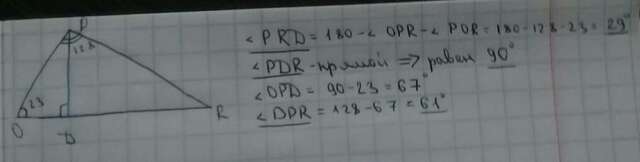 P
128
23
O
D
R
∠PRD = 180 - ∠OPR - ∠POR = 180-128-23 = 29°
∠PDR - прямой => равен 90°
∠OPD = 90-23 = 67°
∠DPR = 128-67 = 61°